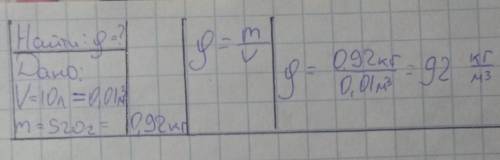 Найти: φ=?
Дано:
V=10л=0,01м³
m=520г=0,92кг
φ=m/v
φ=0,92кг/0,01м³=92 кг/м³